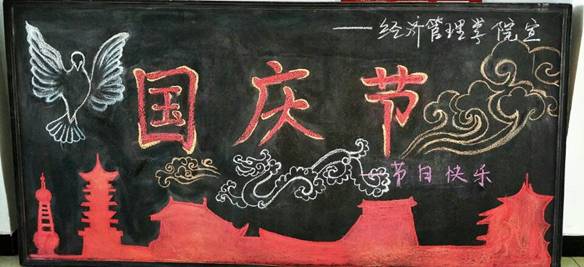 ——经济管理学院宣
国庆节
节日快乐